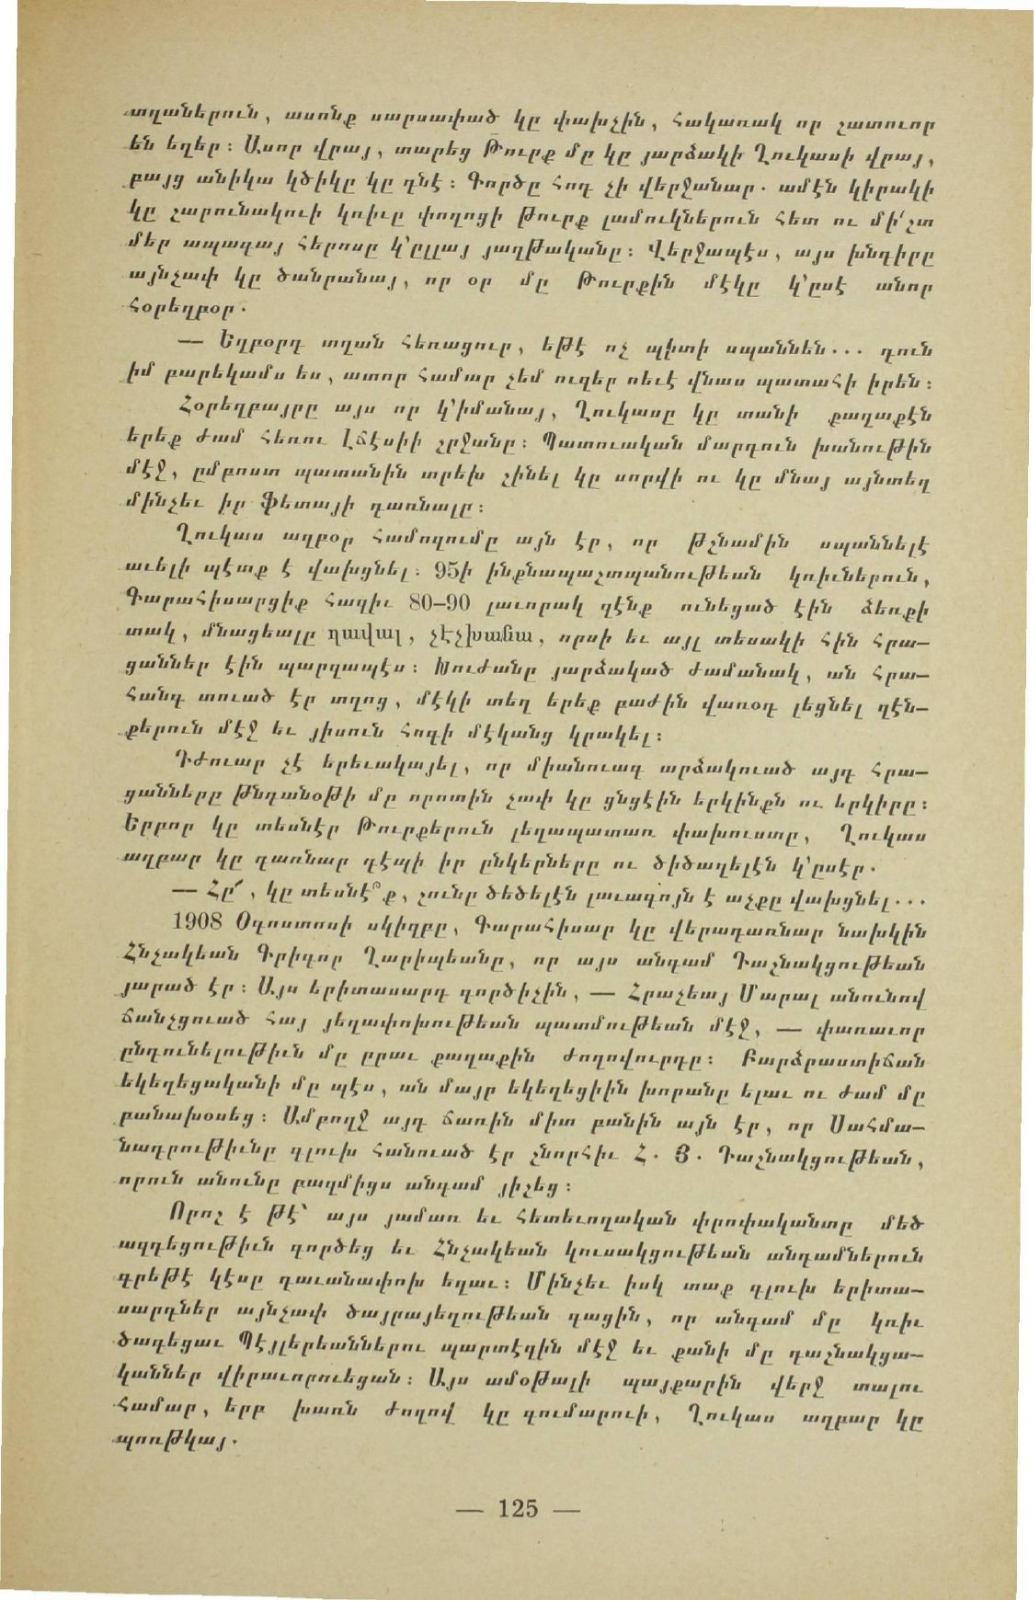 տղաներուն, ասոնք սարսափած կը փախչին, հակառակ որ շատուոր
են եղեր։ Ասոր վրայ, տարեց Թուրք մը կը յարձակի Ղուկասի վրայ,
բայց անիկա կծիկը կը դնէ։ Գործը հոդ չի վերջանար. ամէն կիրակի
կը շարունակուի կռիւը փողոցի թուրք լամուկներուն հետ ու մի՛շտ
մեր ապագայ հերոսը կ՚ըլլայ յաղթականը։ Վերջապէս, այս խնդիրը
այնչափ կը ծանրանայ, որ օր մը Թուրքին մէկը կ՚ըսէ անոր
հօրեղբօր.
— Եղբօրդ տղան հեռացուր, եթէ ոչ պիտի սպաննեն... դուն
իմ բարեկամս ես, ատոր համար չեմ ուզեր ոեւէ վնաս պատահի իրեն։
Հօրեղբայրը այս որ կ՚իմանայ, Ղուկասը կը տանի քաղաքէն
երեք ժամ հեռու Լճէսիի շրջանը։ Պատուական մարդուն խանութին
մէջ, ըմբոստ պատանին տրեխ շինել կը սորվի ու կը մնայ այնտեղ
մինչեւ իր Ֆետայի դառնալը։
Ղուկաս աղբօր համոզումը այն էր, որ թշնամին սպաննելէ
աւելի պէտք է վախցնել։ 95ի ինքնապաշտպանութեան կռիւներուն,
Գարահիսարցիք հազիւ 80–90 լաւորակ զէնք ունեցած էին ձեռքի
տակ, մնացեալը ղավալ, չէչխանա, որսի եւ այլ տեսակի հին հրա—
ցաններ էին պարզապէս։ Խուժանը յարձակած ժամանակ, ան հրա—
հանգ տուած էր տղոց, մէկի տեղ երեք բաժին վառօդ լեցնել զէն—
քերուն մէջ եւ յիսուն հոգի մէկանց կրակել։
Դժուար չէ երեւակայել, որ միանուագ արձակուած այդ հրա—
ցանները թնդանօթի մը որոտին չափ կը ցնցէին երկինքն ու երկիրը։
Երբոր կը տեսնէր Թուրքերուն լեղապատառ փախուստը, Ղուկաս
աղբար կը դառնար դէպի իր ընկերները ու ծիծաղելէն կ՚ըսէր.
— Հը՛, կը տեսնէ՞ք, շունը ծեծելէն լաւագոյն է աչքը վախցնել...
1908 Օգոստոսի սկիզբը, Գարահիսար կը վերադառնար նախկին
Հնչակեան Գրիգոր Ղարիպեանը, որ այս անգամ Դաշնակցութեան
յարած էր։ Այս երիտասարդ գործիչին, — Հրաչեայ Մարալ անունով
ճանչցուած հայ յեղափոխութեան պատմութեան մէջ, — փառաւոր
ընդունելութիւն մը ըրաւ քաղաքին ժողովուրդը։ Բարձրաստիճան
եկեղեցականի մը պէս, ան մայր եկեղեցիին խորանը ելաւ ու ժամ մը
բանախօսեց։ Ամբողջ այդ ճառին միտ բանին այն էր, որ Սահմա—
նադրութիւնը գլուխ հանուած էր շնորհիւ Հ. Յ. Դաշնակցութեան,
որուն անունը բազմիցս անգամ յիշեց։
Որոշ է թէ՝ այս յամառ եւ հետեւողական փրոփականտը մեծ
ազդեցութիւն գործեց եւ Հնչակեան կուսակցութեան անդամներուն
գրեթէ կէսը դաւանափոխ եղաւ։ Մինչեւ իսկ տաք գլուխ երիտա—
սարդներ այնչափ ծայրայեղութեան գացին, որ անգամ մը կռիւ
ծագեցաւ Պէյլերեաններու պարտէզին մէջ եւ քանի մը դաշնակցա—
կաններ վիրաւորուեցան։ Այս ամօթալի պայքարին վերջ տալու
համար, երբ խառն ժողով կը գումարուի, Ղուկաս աղբար կը
պոռթկայ.
— 125 —